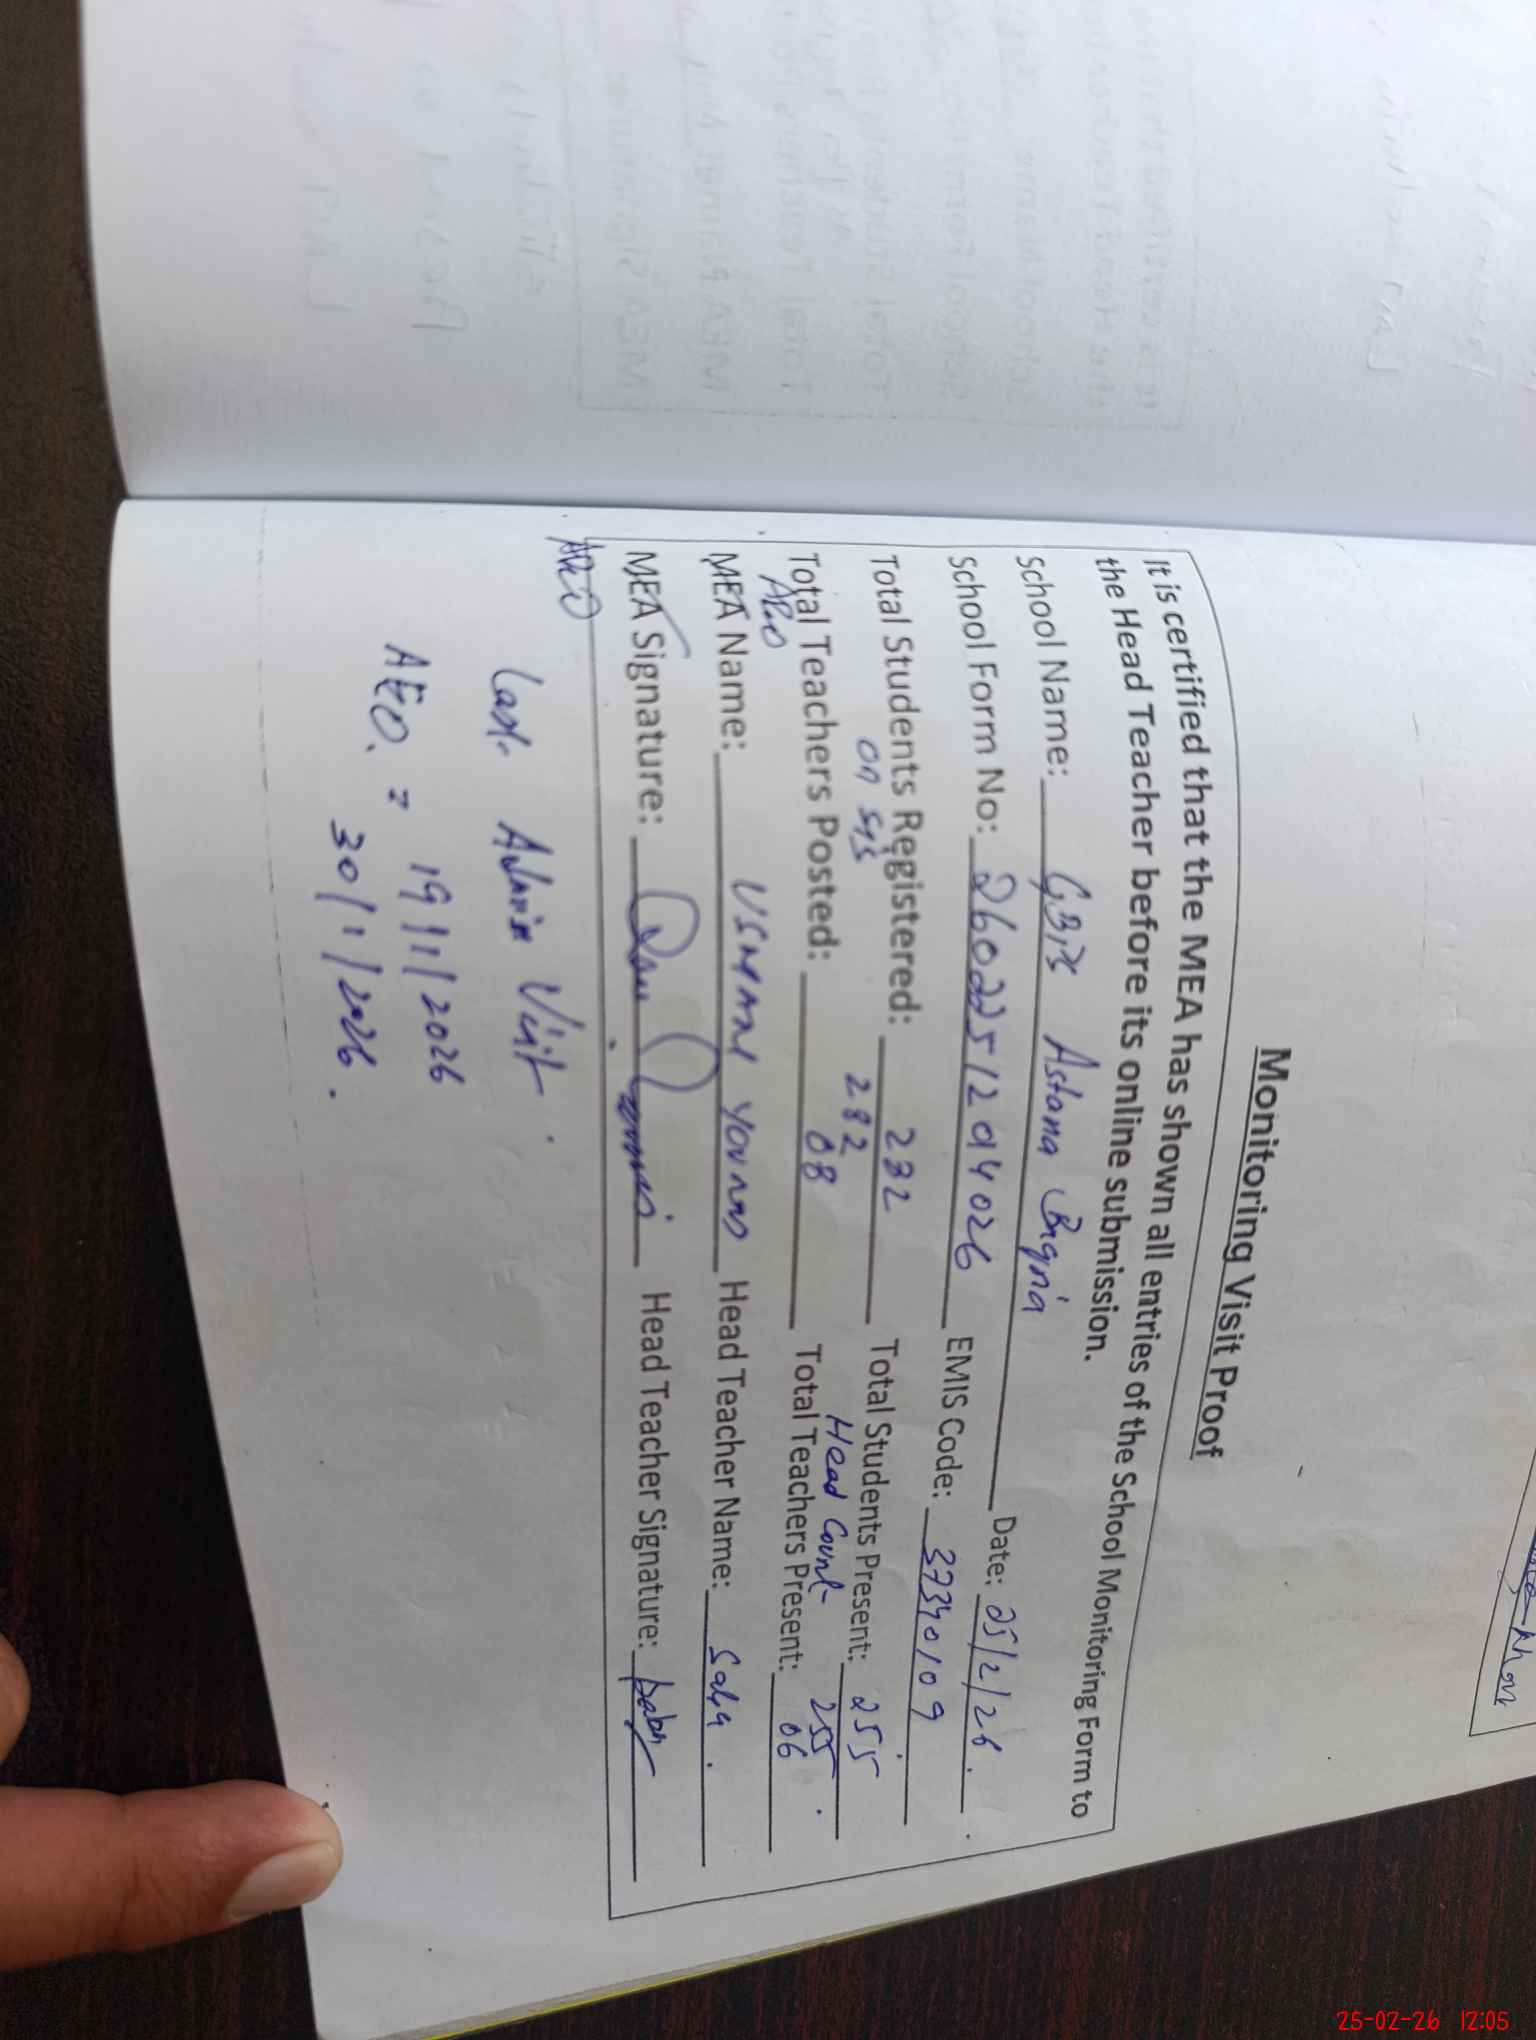 Monitoring Visit Proof
It is certified that the MEA has shown all entries of the School Monitoring Form to
the Head Teacher before its online submission.
School Name: Astana Date: 25/2/26.
School Form No: 26022512014026 EMIS Code: 37340109
Total Students Registered: 282 Total Students Present: 255
on sys 282 Head Count 255.
Total Teachers Posted: 08 Total Teachers Present: 06
MEA Name: USMAN YOUNAS Head Teacher Name: Saba.
MEA Signature: Head Teacher Signature: Saba
Last Admin Visit.
AEO. = 19/1/2026
30/1/2026.
25-02-26 12:05